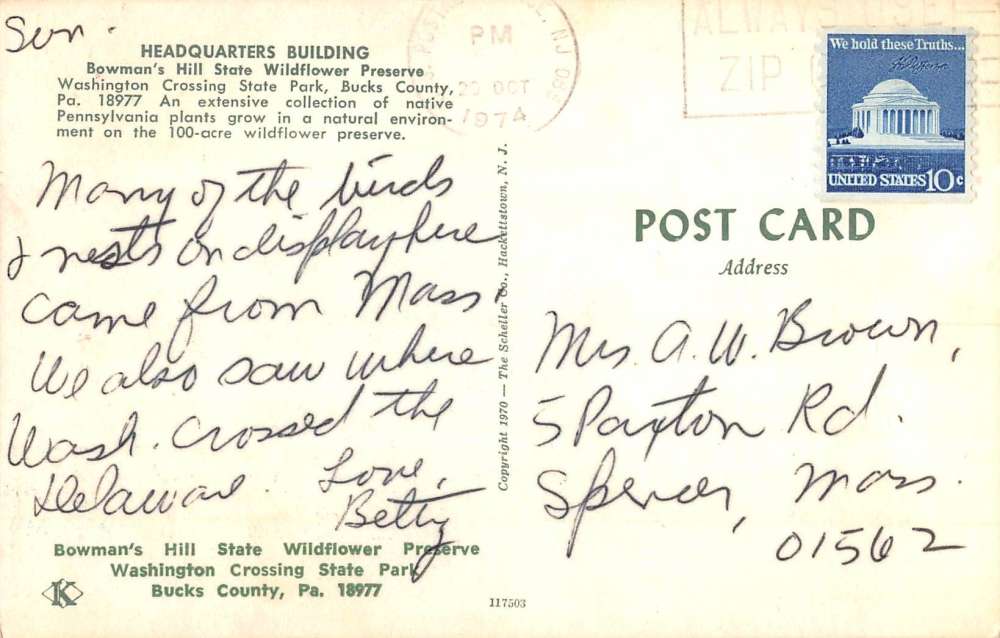 Sun.
HEADQUARTERS BUILDING
Bowman's Hill State Wildflower Preserve
Washington Crossing State Park, Bucks County,
Pa. 18977 An extensive collection of native
Pennsylvania plants grow in a natural environ-
ment on the 100-acre wildflower preserve.
Many of the birds
& nests on display here
came from Mass.
We also saw where
Wash. crossed the
Delaware. Love,
Betty
Bowman's Hill State Wildflower Preserve
Washington Crossing State Park
Bucks County, Pa. 18977
K
Copyright 1970 — The Scheller Co., Hackettstown, N. J.
117503
PM
29 OCT
1974
NJ 088
ALWAYS USE
ZIP
We hold these Truths...
UNITED STATES 10c
POST CARD
Address
Mrs. A. W. Brown,
5 Paxton Rd.
Spencer, Mass.
01562